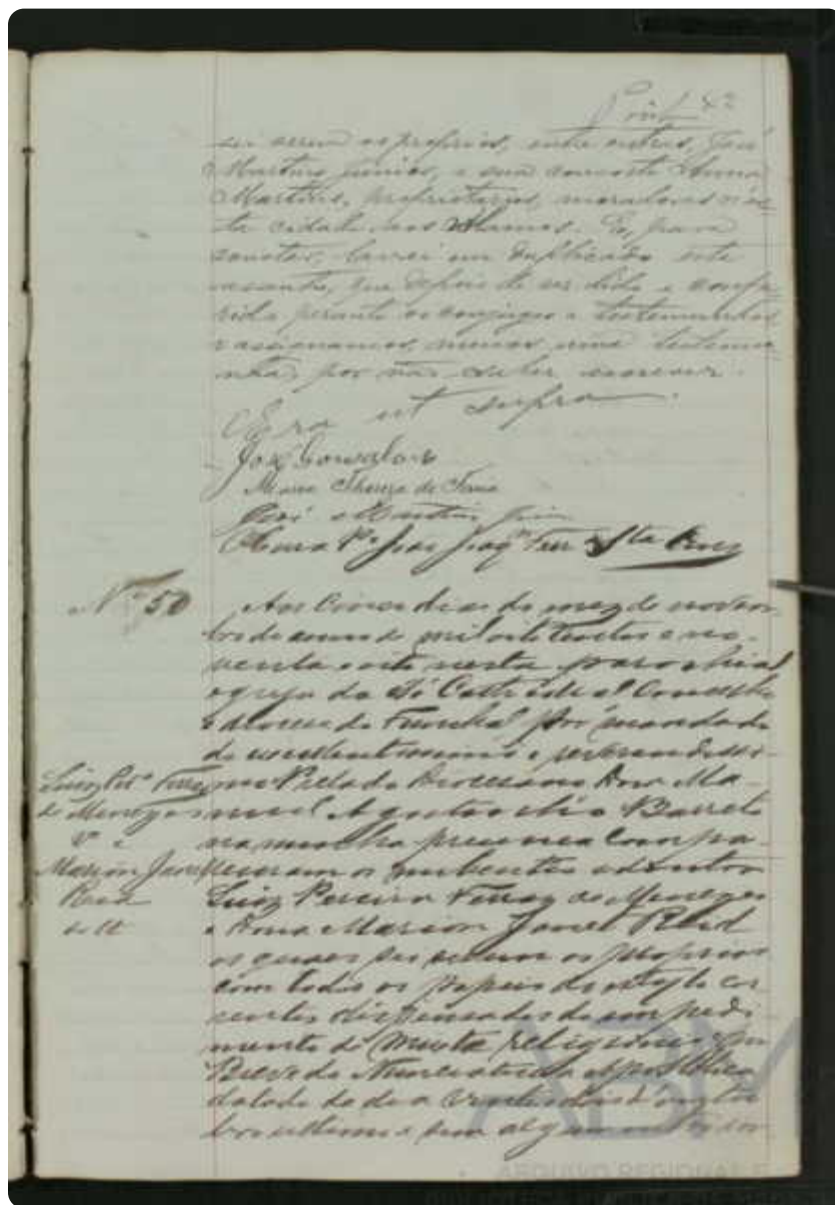 42
sei serem os proprios, entre outros, José
Martins Junior, e sua consorte Anna
Martins, proprietarios, moradores n'es-
ta cidade aos Ilhaus. E, para
constar, lavrei em duplicado este
assento, que depois de ser lido e confe-
rido perante os conjuges e testemunhas
assignamos, menos uma testemu-
nha, por não saber escrever.
Era ut supra.
José Gonsalves
Maria Thereza de Faria
José Martins
Joaq.m
N.º 50
Aos cinco dias do mez de novem-
bro do anno de mil oito centos e no-
venta e oito nesta parochial
egreja da Sé Cathedral Concelho
e diocese do Funchal por mandado
do excellentissimo e reverendissi-
mo Prelado Diocesano Dom Ma-
nuel Agostinho Barreto
na minha presença compa-
receram os nubentes o doutor
Luiz Pereira Ferraz de Menezes
e Dona Marion Janet Reid
os quaes sei serem os proprios
com todos os papeis do estylo cor
rentes dispensados do impedi-
mento de mixta religião
Breve da Nunciatura Apostolica
datado do dia vinte d'outu
bro ultimo e sem algum
Luiz Per.ª Ferraz
de Menezes
e
Marion Janet
Reid
ABM
ARQUIVO REGIONAL E